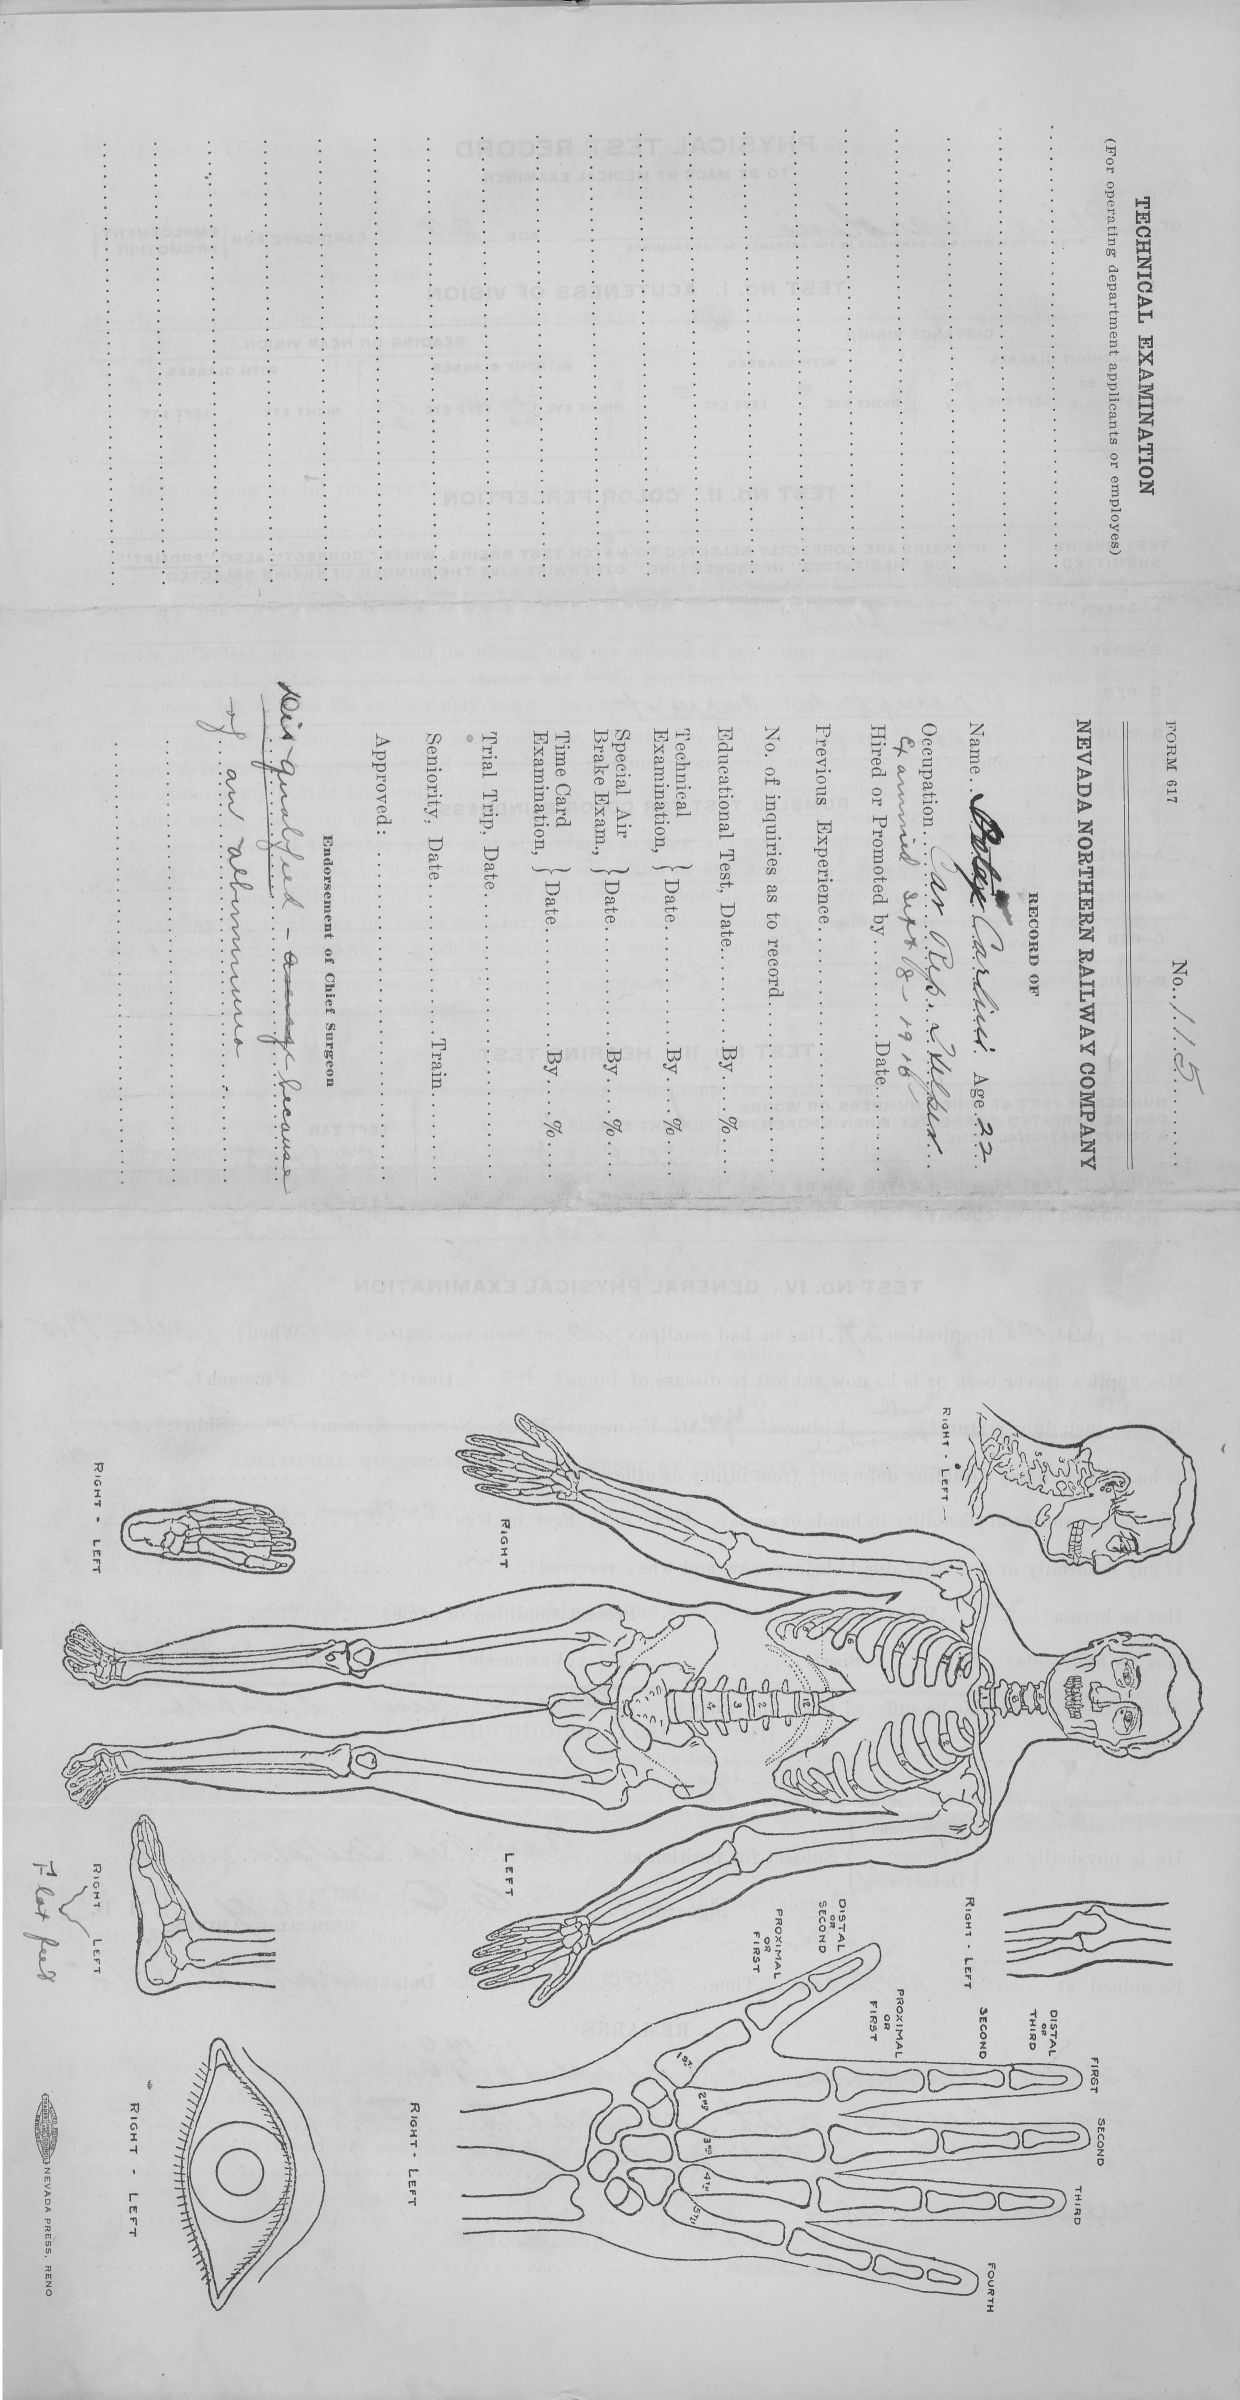 TECHNICAL EXAMINATION
(For operating department applicants or employes)
FORM 617
No. 115
NEVADA NORTHERN RAILWAY COMPANY
RECORD OF
Name Carlini Age 22
Occupation Car Rep. Helper
Examined Sept 18 - 1916
Hired or Promoted by Date
Previous Experience
No. of inquiries as to record
Educational Test, Date By %
Technical Examination, } Date By %
Special Air Brake Exam., } Date By %
Time Card Examination, } Date By %
Trial Trip, Date
Seniority, Date Train
Approved:
Endorsement of Chief Surgeon
Dis-qualified - because
of an albuminuria
RIGHT - LEFT
RIGHT
LEFT
RIGHT - LEFT
RIGHT LEFT
Flat feet
RIGHT - LEFT
DISTAL OR SECOND
PROXIMAL OR FIRST
PROXIMAL OR FIRST
SECOND
DISTAL OR THIRD
FIRST
SECOND
THIRD
FOURTH
1ST.
2ND
3RD
4TH
5TH
RIGHT - LEFT
RIGHT - LEFT
NEVADA PRESS, RENO